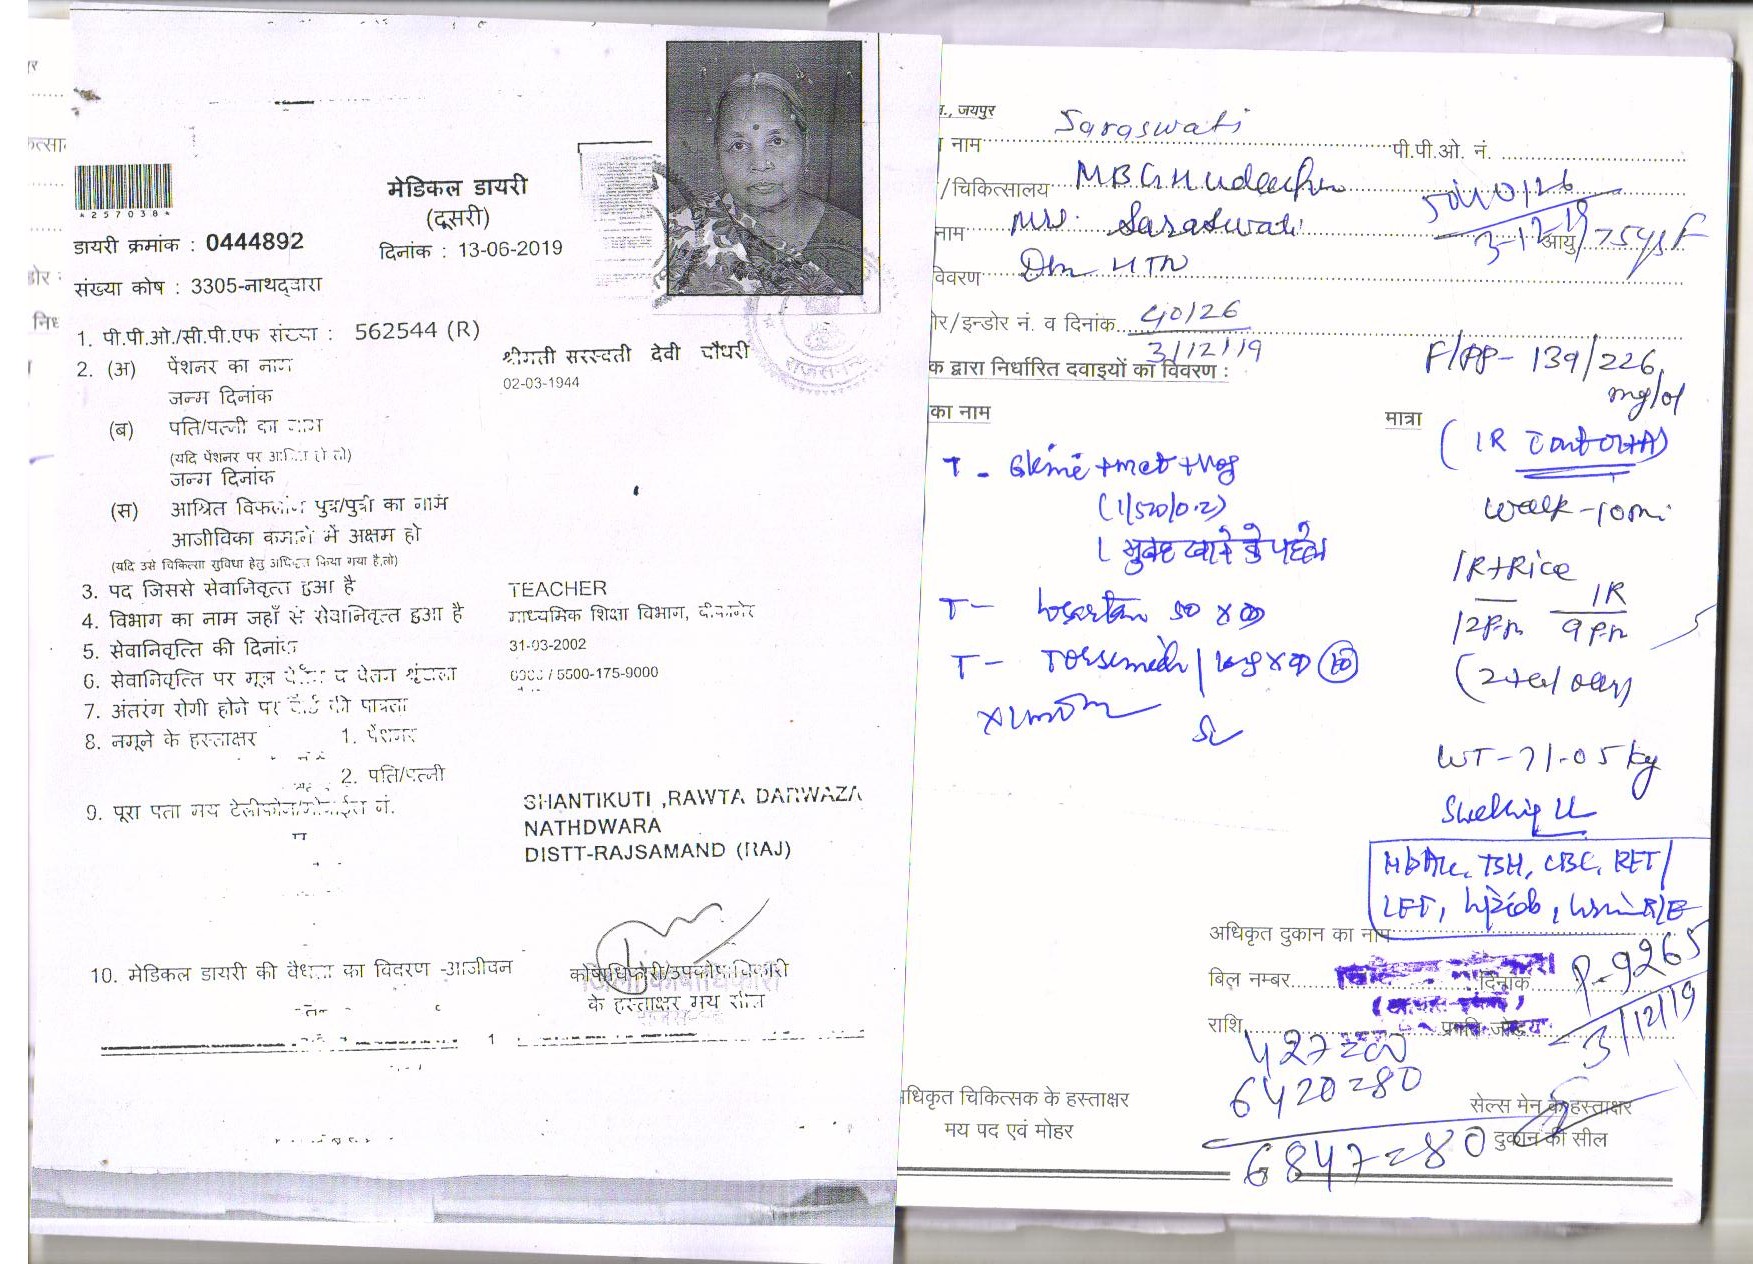 *257038*
मेडिकल डायरी
(दूसरी)
डायरी क्रमांक : 0444892
दिनांक : 13-06-2019
संख्या कोष : 3305-नाथद्वारा
1. पी.पी.ओ./सी.पी.एफ संख्या : 562544 (R)
2. (अ) पेंशनर का नाम श्रीमती सरस्वती देवी चौधरी
जन्म दिनांक 02-03-1944
(ब) पति/पत्नी का नाम
(यदि पेंशनर पर आश्रित हो तो)
जन्म दिनांक
(स) आश्रित विकलांग पुत्र/पुत्री का नाम
आजीविका कमाने में अक्षम हो
(यदि उसे चिकित्सा सुविधा हेतु अधिकृत किया गया है,तो)
3. पद जिससे सेवानिवृत्त हुआ है TEACHER
4. विभाग का नाम जहाँ से सेवानिवृत्त हुआ है माध्यमिक शिक्षा विभाग, बीकानेर
5. सेवानिवृत्ति की दिनांक 31-03-2002
6. सेवानिवृत्ति पर मूल वेतन व वेतन श्रृंखला / 5500-175-9000
7. अंतरंग रोगी होने पर वार्ड की पात्रता
8. नमूने के हस्ताक्षर 1. पेंशनर
2. पति/पत्नी
9. पूरा पता मय टेलीफोन/मोबाईल नं. SHANTIKUTI ,RAWTA DARWAZA
NATHDWARA
DISTT-RAJSAMAND (RAJ)
10. मेडिकल डायरी की वैधता का विवरण -आजीवन
कोषाधिकारी/उपकोषाधिकारी
के हस्ताक्षर मय सील
1
., जयपुर
नाम Saraswati पी.पी.ओ. नं.
/चिकित्सालय MBGH Udaipur
नाम Mrs. Saraswati आयु 75 yrs F
3-12-19
विवरण DM HTN
/इन्डोर नं. व दिनांक 40/26
3/12/19
क द्वारा निर्धारित दवाइयों का विवरण :
F/PP- 139/226 mg/dl
का नाम मात्रा
T - Glime+met+Vog
(1/500/0.2)
1 सुबह खाने के पहले
walk-10mi
1R+Rice 1R
12pm 9pm
T- Losartan 50
T-
WT-71.05kg
Swelling LL
HbA1c, TSH, CBC, RFT/
LFT, lipid, urine R/E
अधिकृत दुकान का नाम
बिल नम्बर दिनांक P-9265
3/12/19
राशि 427=00
6420=80
6847=80
अधिकृत चिकित्सक के हस्ताक्षर
मय पद एवं मोहर
सेल्स मेन के हस्ताक्षर
दुकान की सील